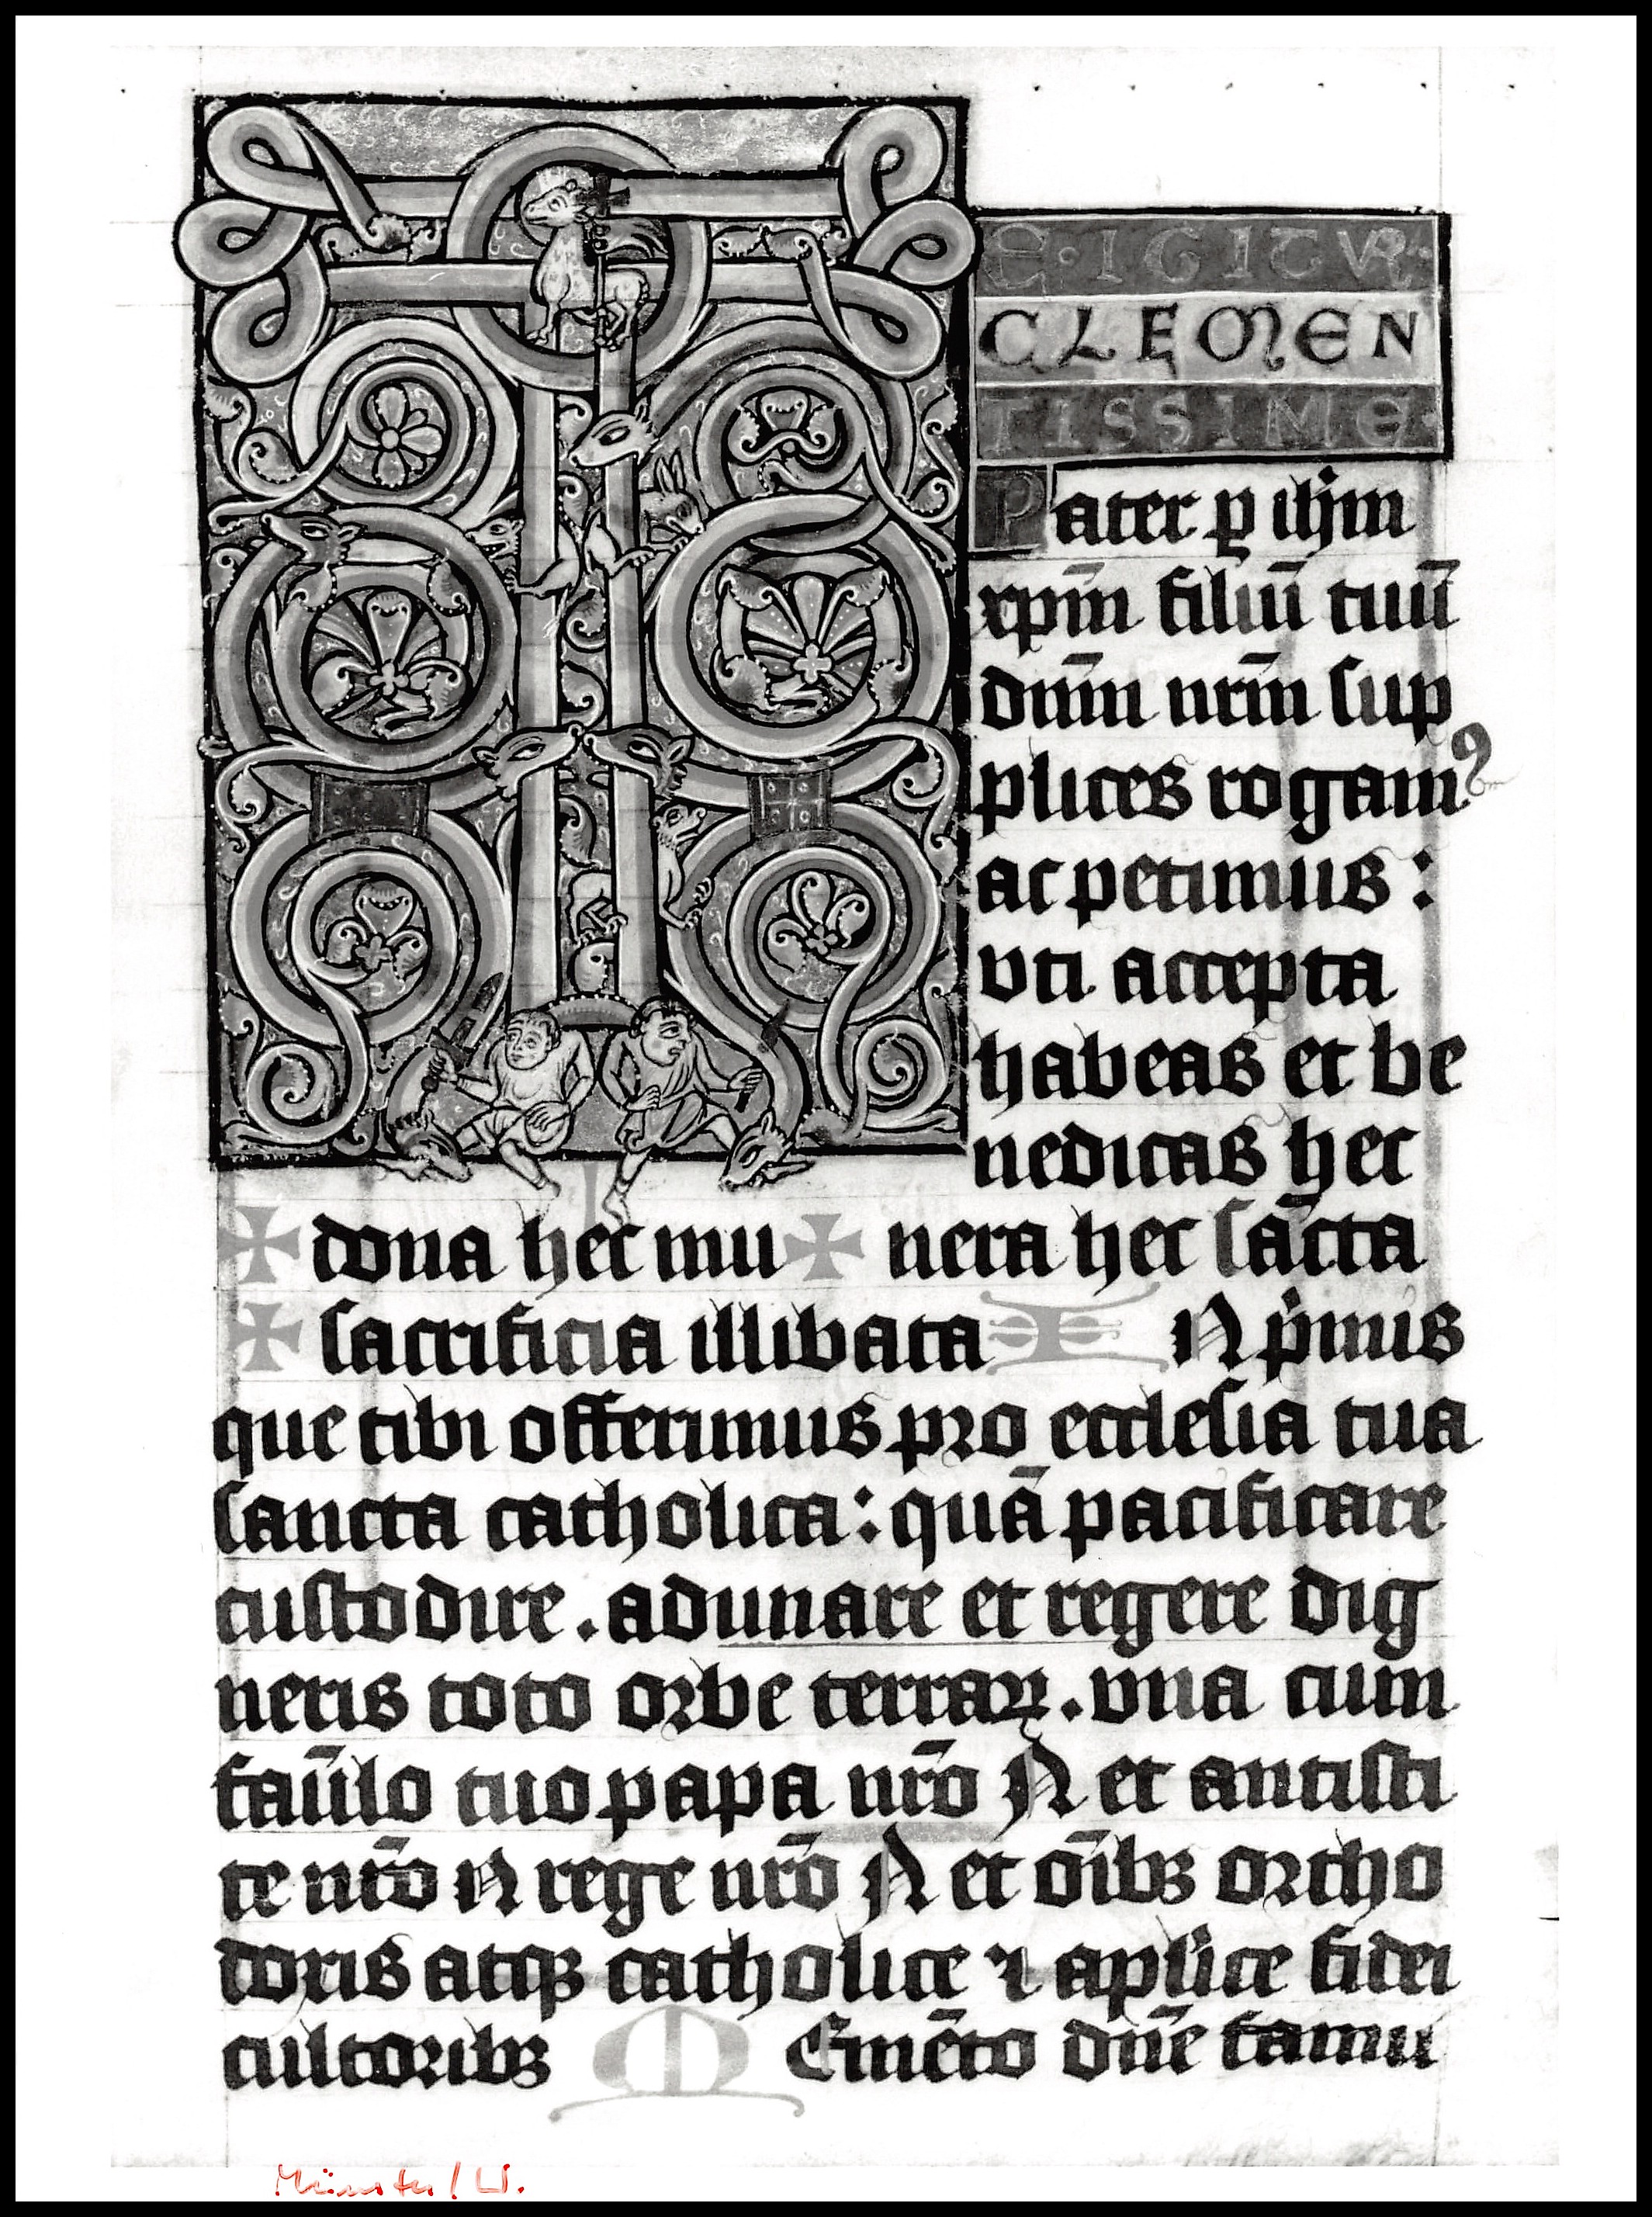 TE·IGITUR
CLEMEN
TISSIME·
Pater ꝑ ihm̄
xpm̄ filiū tuū
dnm̄ nrm̄ sup
plices rogamꝰ
ac petimus:
vti accepta
habeas et be
nedicas hec
✠ dona hec mu ✠ nera hec sācta
✠ sacrificia illibata IN pͥmis
que tibi offerimus pro ecclesia tua
sancta catholica: quā pacificare
custodire. adunare et regere dig
neris toto orbe terraꝝ. vna cum
fam̄lo tuo papa nr̄o N et antisti
te nr̄o N rege nr̄o N et oīb; ortho
doxis atqꝫ catholice ⁊ aplīce fidei
cultoribꝫ MEmēto dn̄e famu
Münster/W.